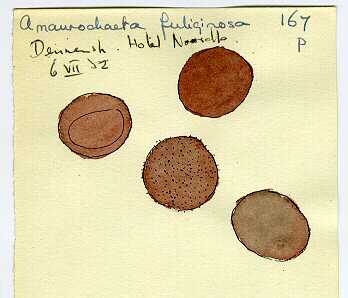 Amaurochaeta fuliginosa 167
Denmark. Hotel P
6 VII 52